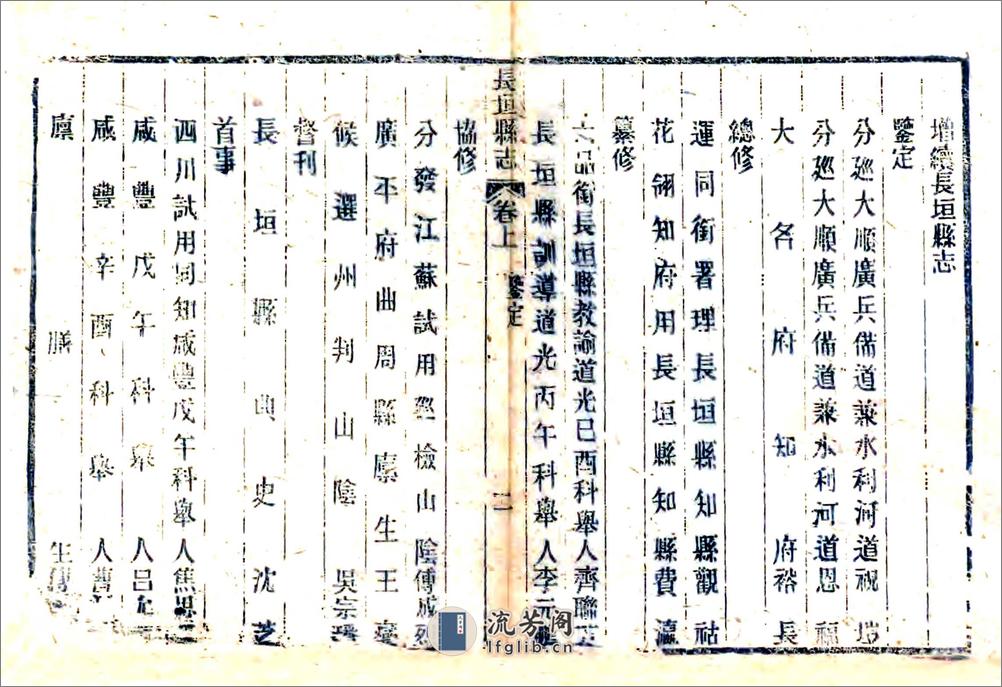 增續長垣縣志
鑒定
分廵大順廣兵備道兼水利河道祝塏
分廵大順廣兵備道兼水利河道恩福
大名府知府裕長
總修
運同銜署理長垣縣知縣觀祜
花翎知府用長垣縣知縣費瀛
纂修
六品銜長垣縣教諭道光己酉科舉人齊聯芳
長垣縣訓導道光丙午科舉人李元
長垣縣志 卷上 鑒定 二
協修
分發江蘇試用廵檢山陰傅成烈
廣平府曲周縣廪生王
候選州判山陰吳宗
督刊
長垣縣典史沈芝
首事
四川試用同知咸豐戊午科舉人焦思
咸豐戊午科舉人呂
咸豐辛酉科舉人曹
廪膳生傅
流芳阁
lfglib.cn